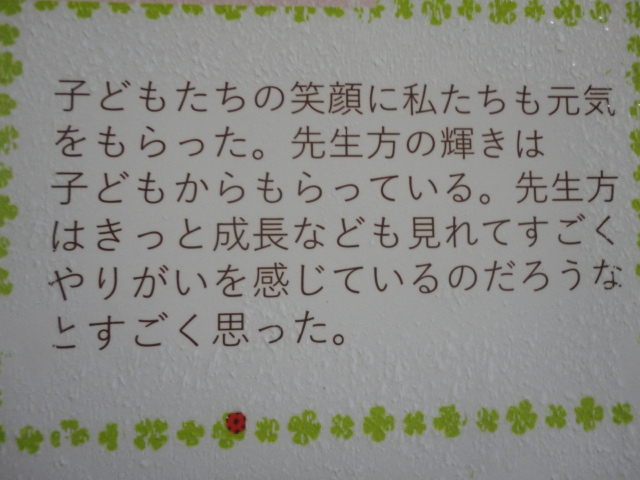 子どもたちの笑顔に私たちも元気
をもらった。先生方の輝きは
子どもからもらっている。先生方
はきっと成長なども見れてすごく
やりがいを感じているのだろうな
とすごく思った。